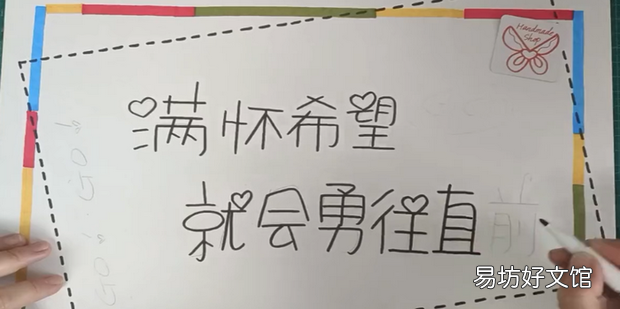 Handmade
Shop
满怀希望
就会勇往直前
GO! GO!
易坊好文馆